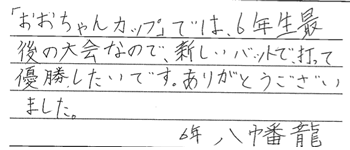 「おおちゃんカップ」では、6年生最
後の大会なので、新しいバットで、打って
優勝したいです。ありがとうござい
ました。
6年 八幡龍